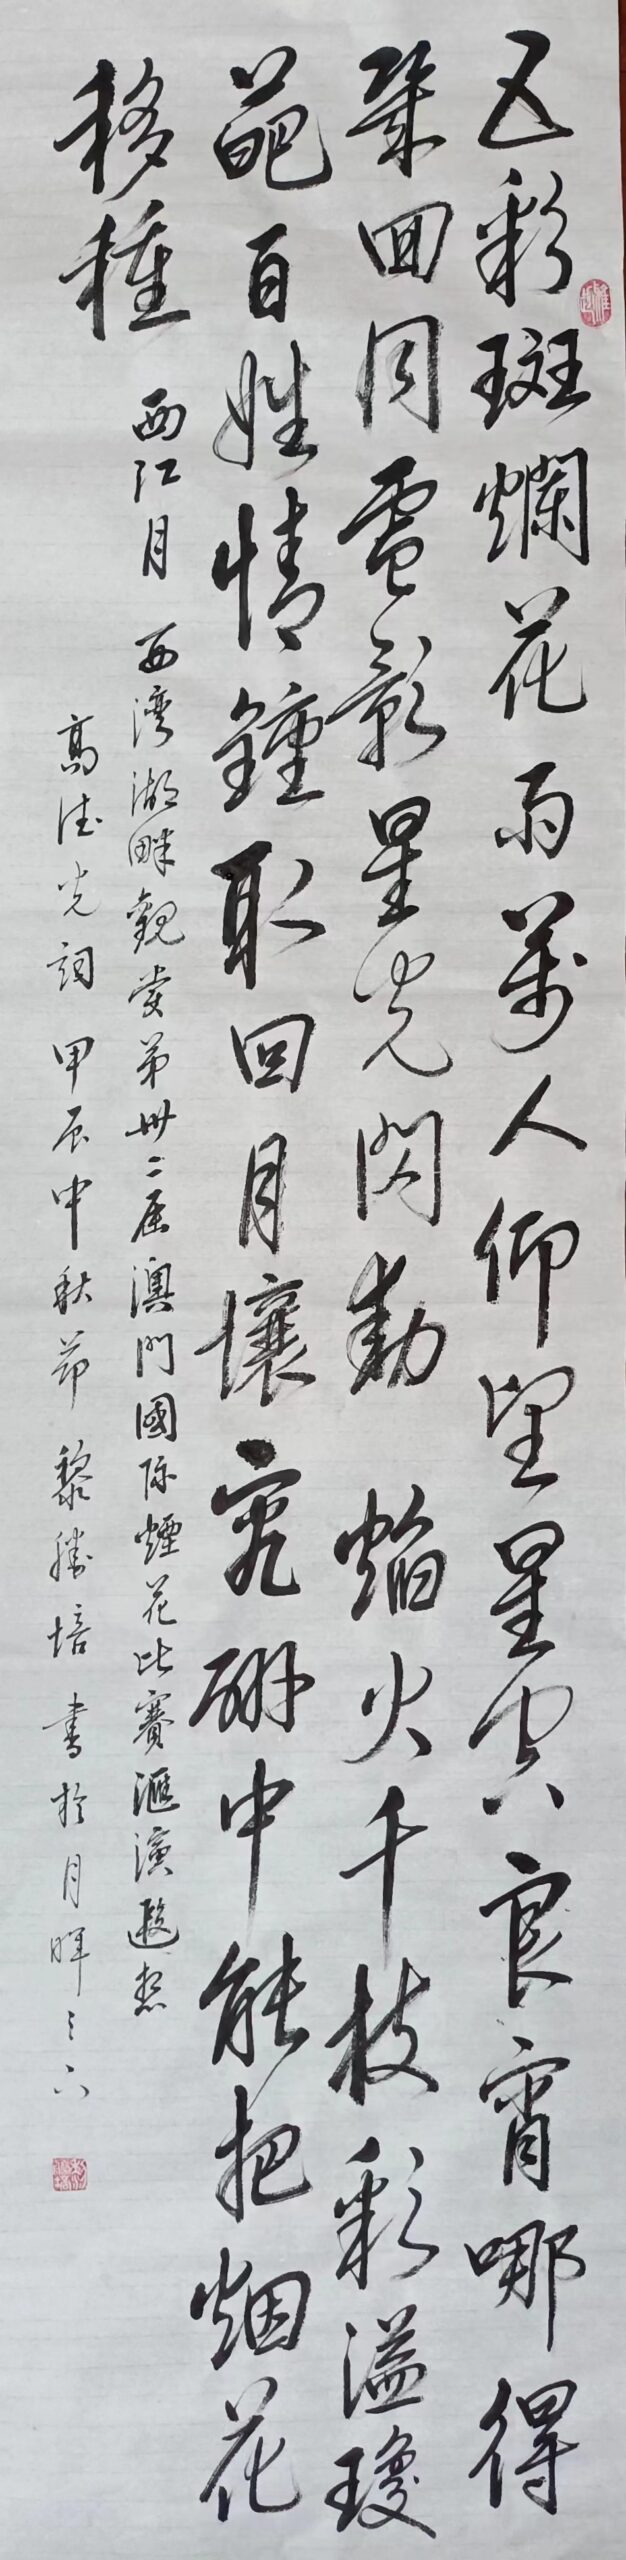 五彩斑爛花雨萬人仰望星空良宵哪得
幾回同電影星光閃動 焰火千枝彩溢瓊
葩百姓情鍾取回月壤窅硎中能把烟花
移種 西江月 西湾湖畔觀賞第卅二届澳門國际煙花比賽滙演遐想
高德光詞 甲辰中秋节 黎勝培書於月暉之下